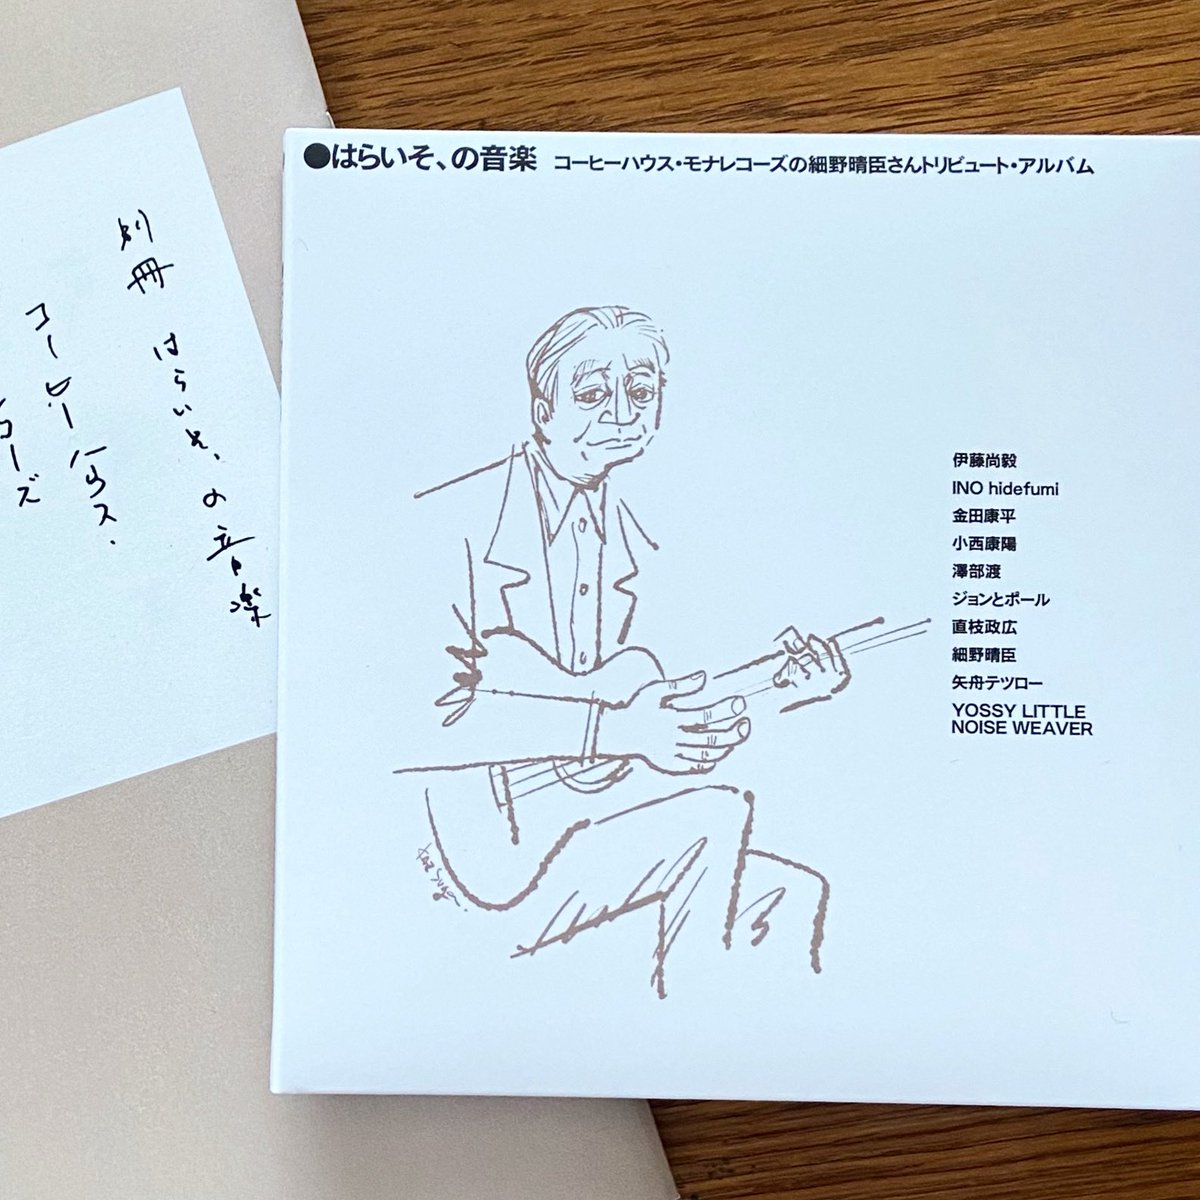 ●はらいそ、の音楽 コーヒーハウス・モナレコーズの細野晴臣さんトリビュート・アルバム
伊藤尚毅
INO hidefumi
金田康平
小西康陽
澤部渡
ジョンとポール
直枝政広
細野晴臣
矢舟テツロー
YOSSY LITTLE
NOISE WEAVER
別冊 はらいそ、の音楽
コーヒーハウス・
コーズ